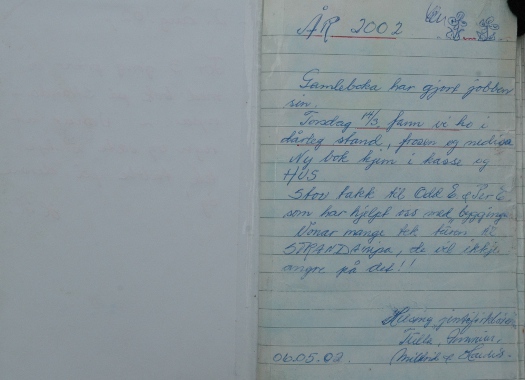 ÅR 2002
Gamleboka har gjort jobben
sin.
Torsdag 14/3 fann vi ho i
dårleg stand, frosen og nediga
Ny bok kjem i kasse og
HUS
Stor takk til Odd E & Per E
som har hjelpt oss med bygginga
Vonar mange tek turen til
STRANDAnipa, de vil ikkje
angre på det!!
Helsing
06.05.02.